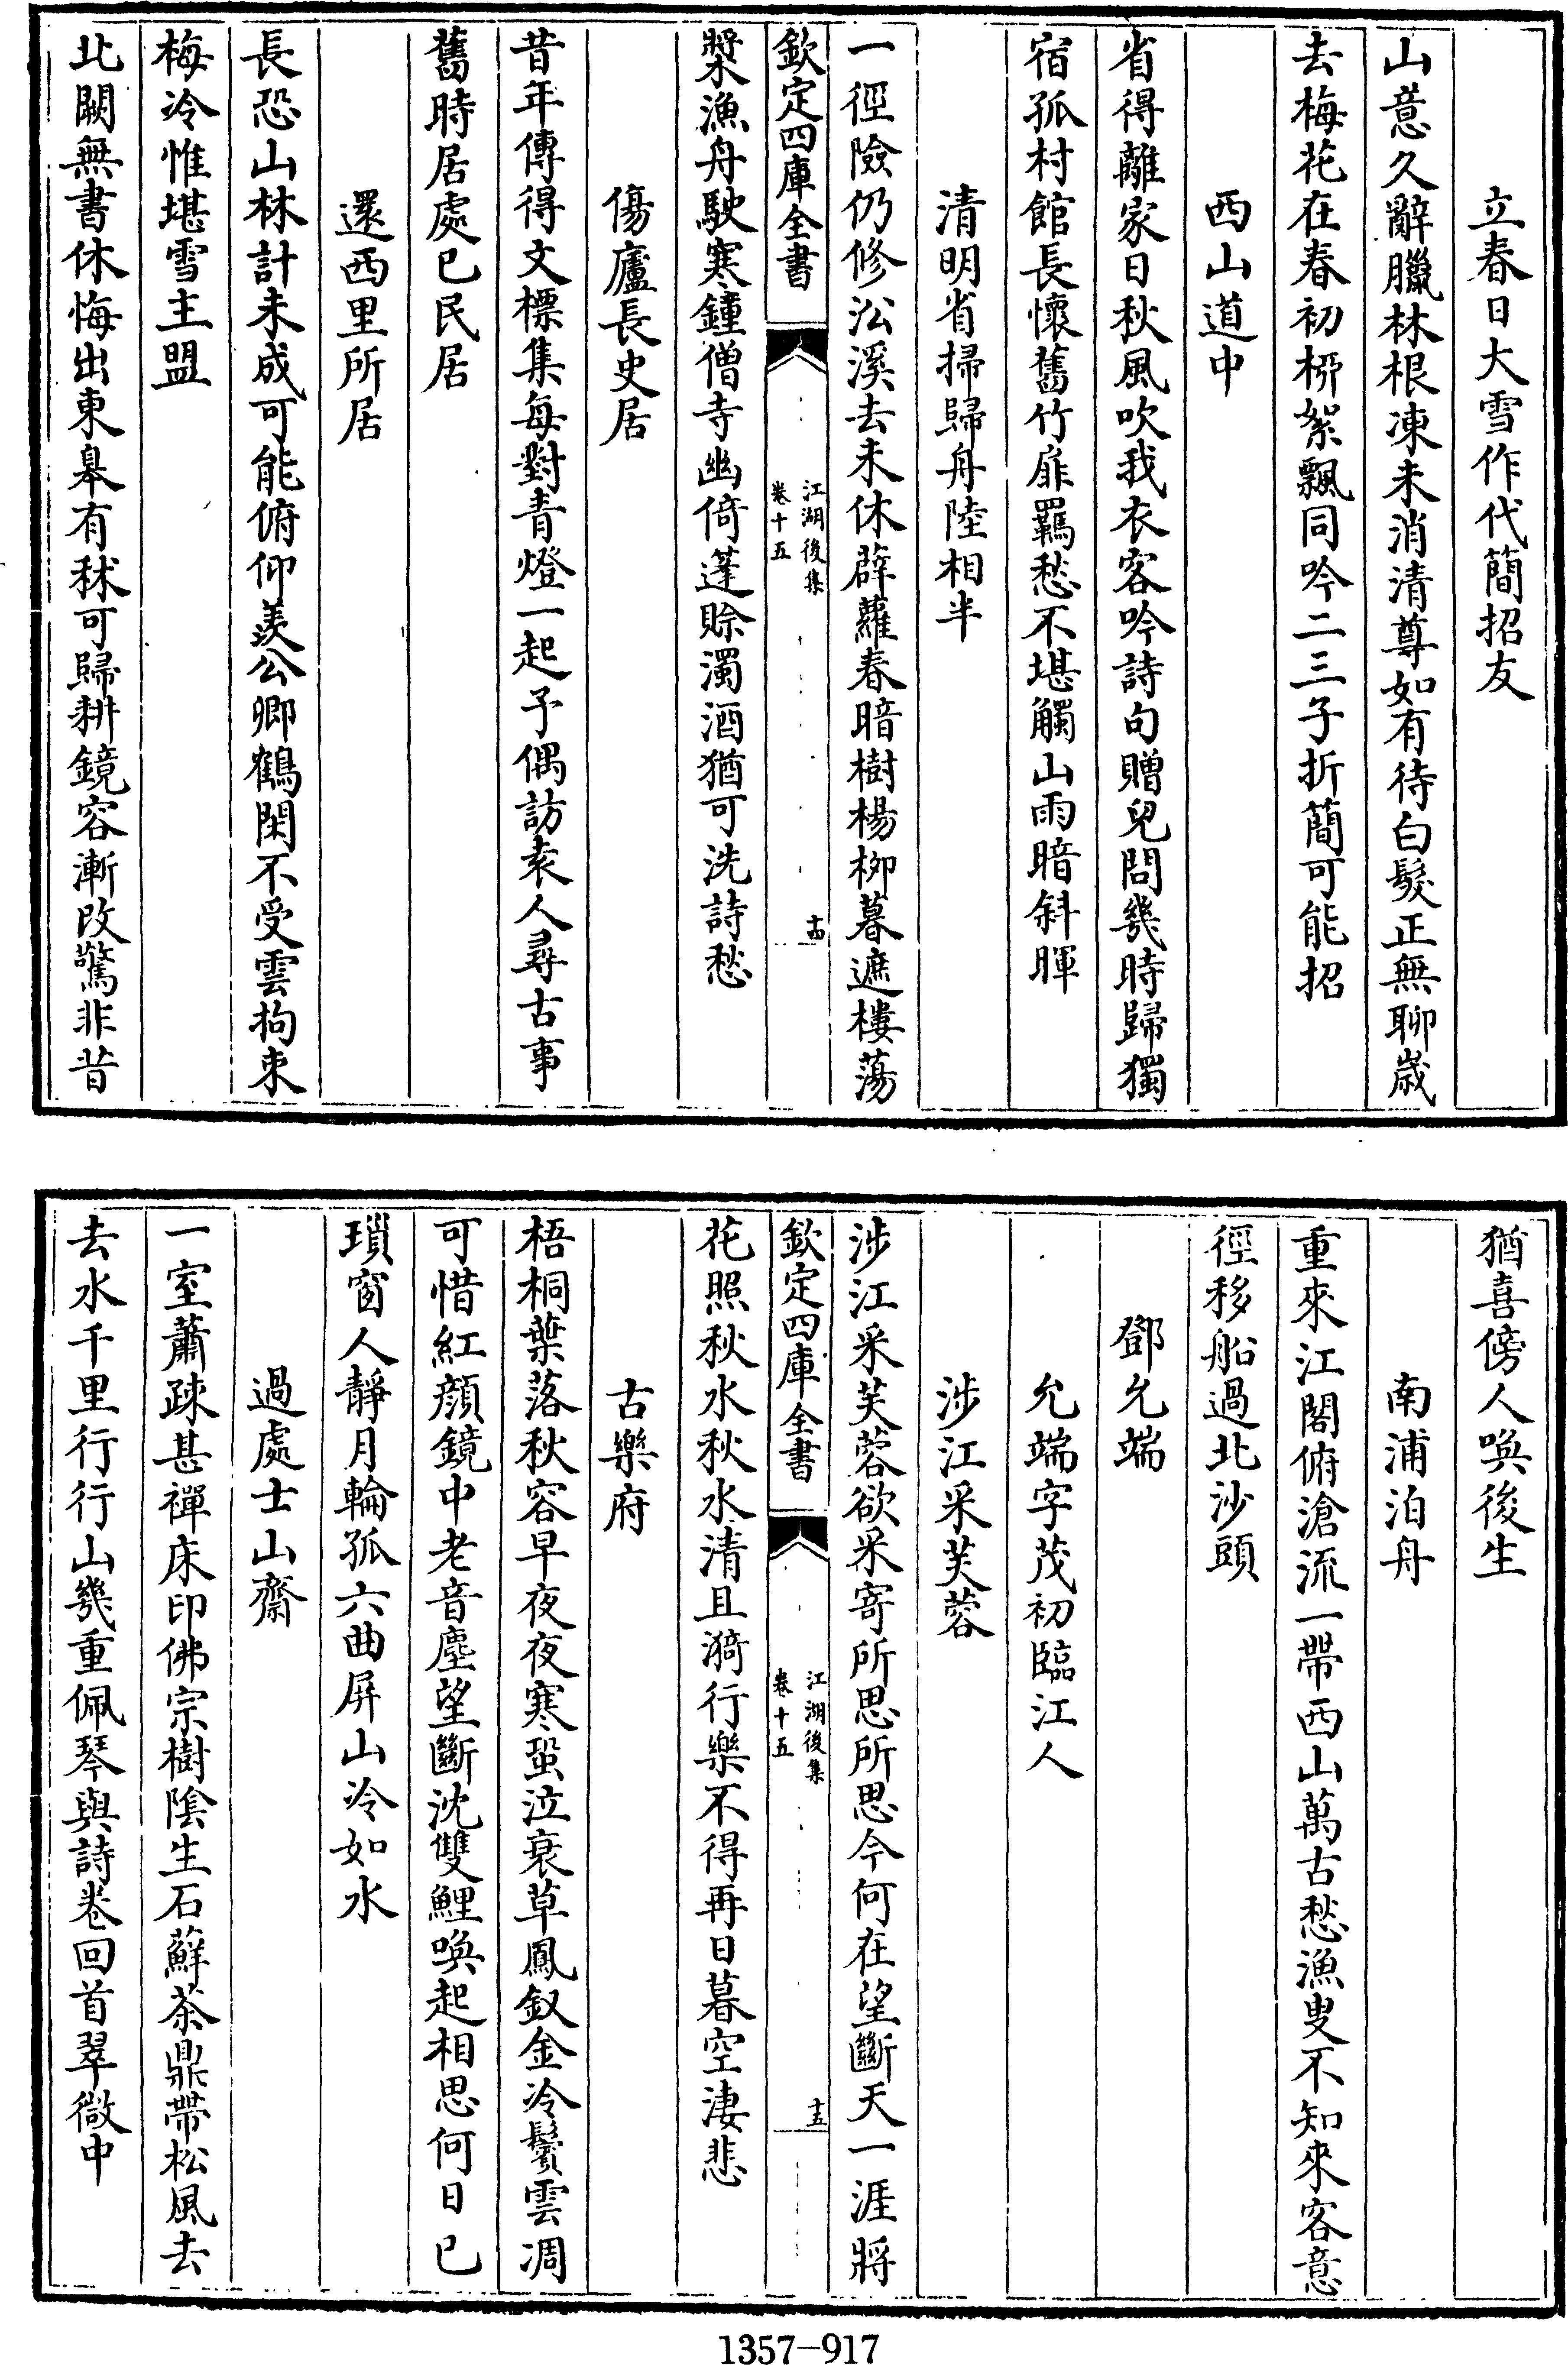 立春日大雪作代簡招友
山意久辭臘林根凍未消清尊如有待白髮正無聊歲
去梅花在春初桞絮飄同吟二三子折簡可能招
西山道中
省得離家日秋風吹我衣客吟詩句贈兒問幾時歸獨
宿孤村館長懷舊竹扉羈愁不堪觸山雨暗斜暉
清明省掃歸舟陸相半
一徑險仍修㳂溪去未休薜蘿春暗樹楊栁暮遮樓蕩
欽定四庫全書
江湖後集
卷十五
十四
槳漁舟駛寒鐘僧寺幽倚蓬賒濁酒猶可洗詩愁
傷廬長史居
昔年傳得文標集每對青燈一起予偶訪袁人尋古事
舊時居處已民居
還西里所居
長恐山林計未成可能俯仰羨公卿鶴閑不受雲拘束
梅冷惟堪雪主盟
北闕無書休悔出東皋有秫可歸耕鏡容漸改驚非昔
猶喜傍人喚後生
南浦泊舟
重來江閣俯滄流一帶西山萬古愁漁叟不知來客意
徑移船過北沙頭
鄧允端
允端字茂初臨江人
涉江采芙蓉
涉江采芙蓉欲采寄所思所思今何在望斷天一涯將
欽定四庫全書
江湖後集
卷十五
十五
花照秋水秋水清且漪行樂不得再日暮空淒悲
古樂府
梧桐葉落秋容早夜夜寒蛩泣衰草鳳釵金冷鬢雲凋
可惜紅顔鏡中老音塵望斷沈雙鯉喚起相思何日已
瑣窗人靜月輪孤六曲屏山冷如水
過處士山齋
一室蕭疎甚禪床印佛宗樹陰生石蘚茶鼎帶松風去
去水千里行行山幾重佩琴與詩卷回首翠微中
1357-917